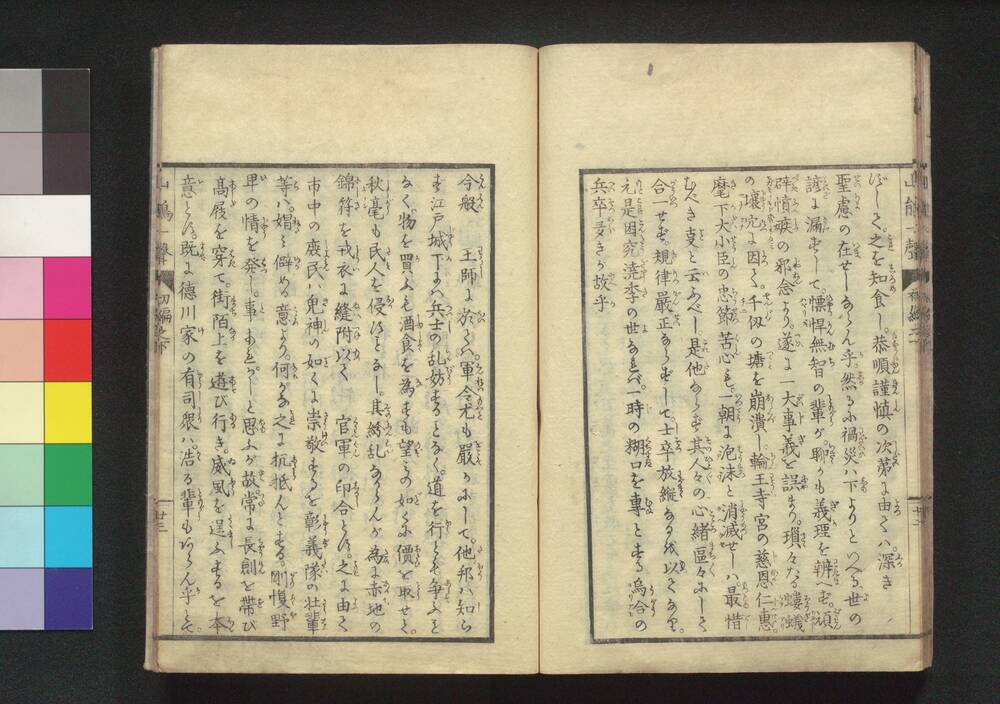 ばしく。之を知食し。恭順謹慎の次第に由ては。深き
聖慮の在せしならん乎。然るに禍災ハ下よりといへる世の
諺に漏ずして。慓悍無智の輩が。聊かも義理を辨へず。頑
僻憤嫉の邪念より。遂に一大事義を誤まり。瑣々たる螻蟻
の壤穴に因て。千仭の塘を崩潰し。輪王寺宮の慈恩仁惠
麾下大小臣の忠節苦心も。一朝に泡沫と消滅せしハ。最惜
むべき支と云ふべし。是他ならず其人々の心緒區々にして
合一せず。規律嚴正ならずして。士卒放縦なるを以てなり。
元是因究澆季の世なれバ。一時の糊口を專とする烏合の
兵卒多きが故乎
今般 王師に於てハ。軍令尤も嚴かにして。他邦ハ知ら
ず江戸城下にハ兵士の乱妨することなく。道を行とも争ふこと
なく。物を買ふも酒食を為すも望みの如くに價を取せて。
秋毫も民人を侵すことなし。其紛乱あらんが為に赤地の
錦符を戎衣に縫附以て 官軍の印合とす。之に由て
市中の庶民ハ鬼神の如くに崇敬するを彰義隊の壮輩
等ハ。娼み僻める意より。何がな之に抗抵んとする。剛愎野
卑の情を発し。事あれがしと思ふが故常に長劍を帶び
高屐を穿て。街陌上を遊び行き。威風を逞ふするを本
意とす。既に德川家の有司衆ハ。浩る輩もあらん乎とて。
山鵑一聲
初編之下
廿三